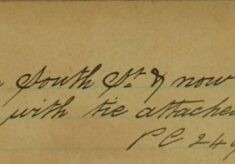 South St & now
with tie attached
PC 249